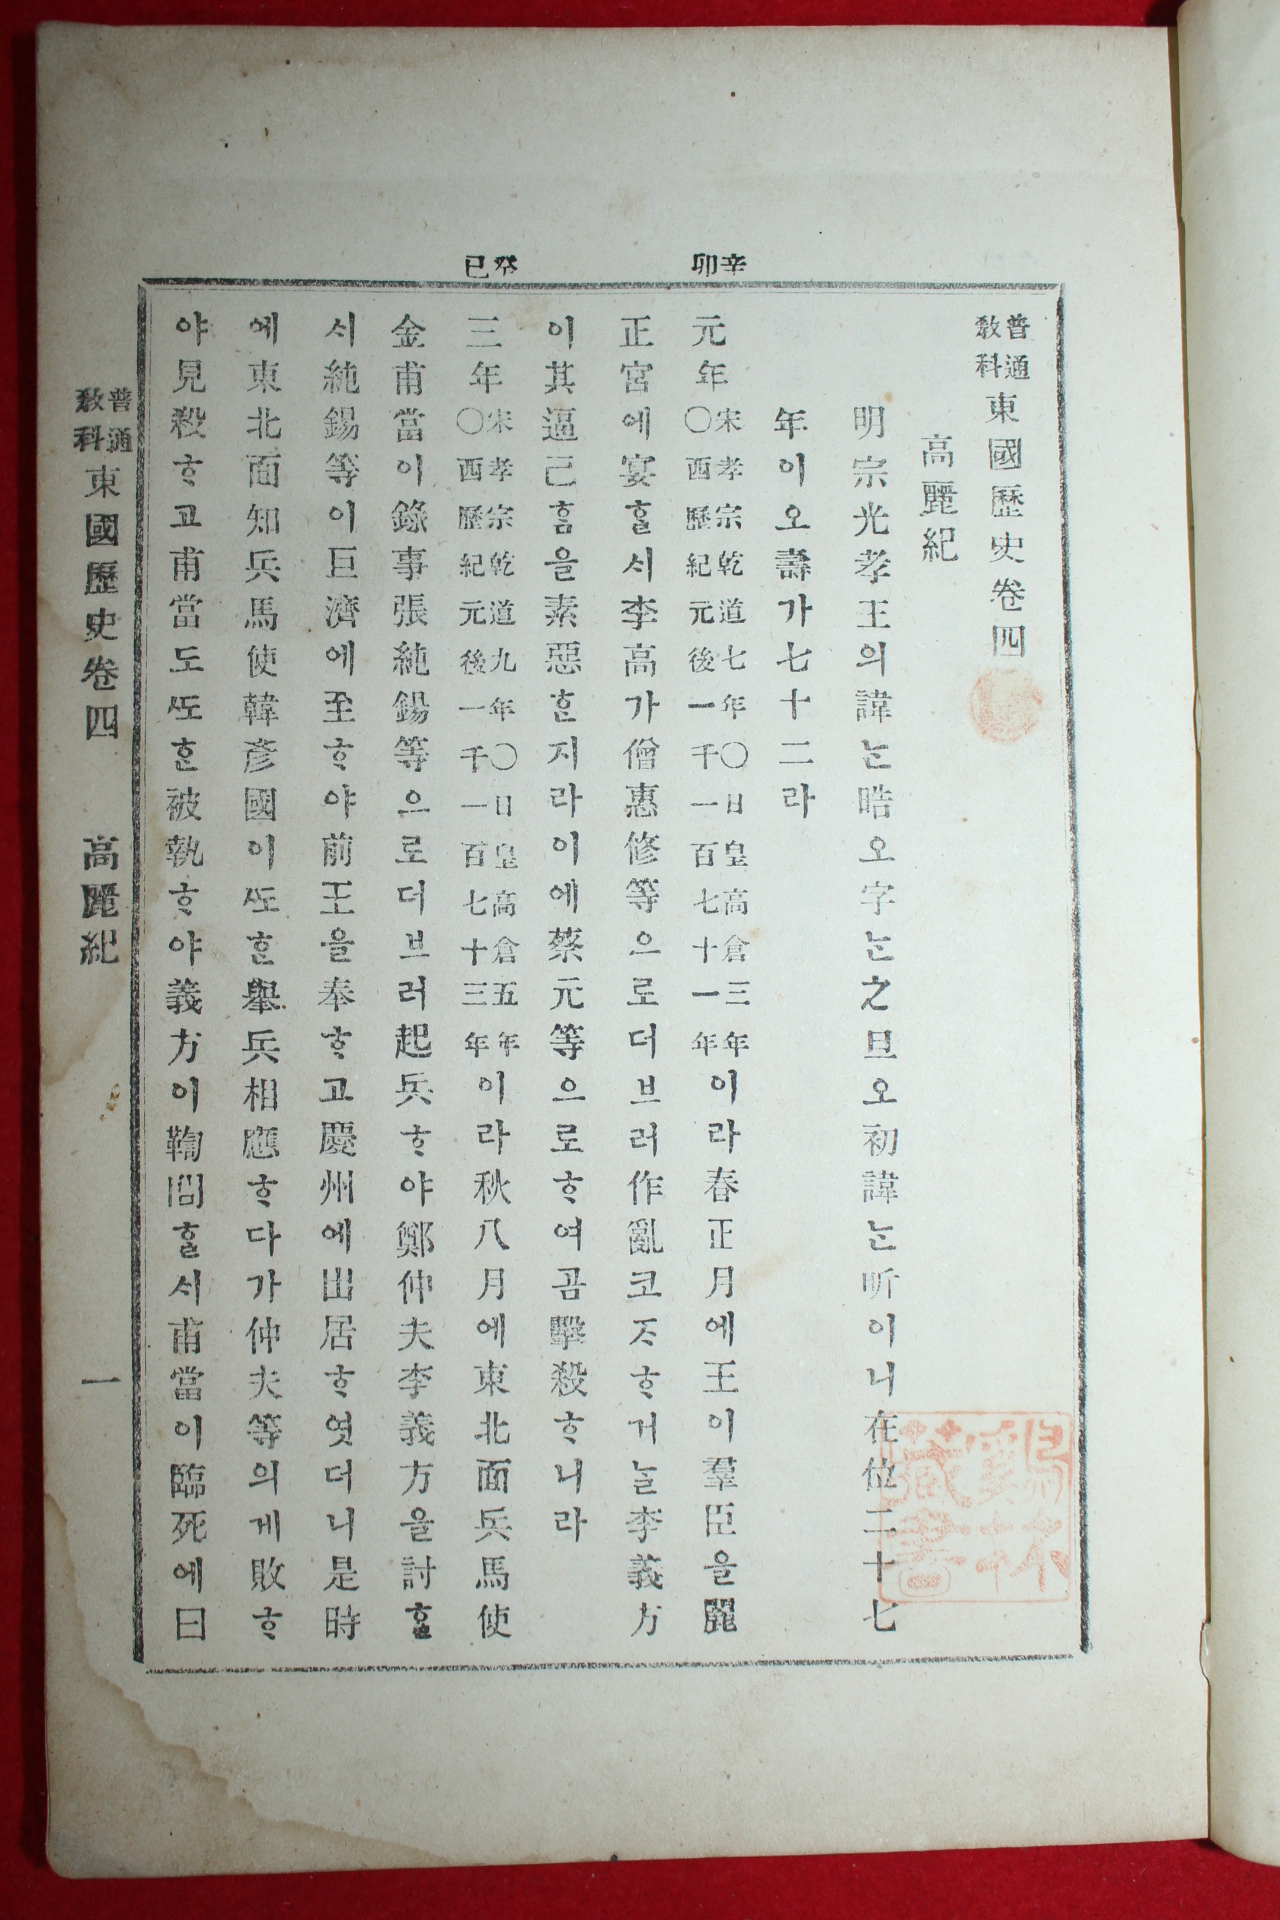 辛卯
癸巳
普通教科 東國歷史卷四
高麗紀
明宗光孝王의諱ᄂᆞᆫ晧오字ᄂᆞᆫ之旦오初諱ᄂᆞᆫ昕이니在位二十七
年이오壽가七十二라
元年宋孝宗乾道七年〇日皇高倉三年〇西歷紀元後一千一百七十一年이라春正月에王이羣臣을麗
正宮에宴ᄒᆞᆯᄉᆡ李高가僧惠修等으로더브러作亂코ᄌᆞᄒᆞ거ᄂᆞᆯ李義方
이其逼己ᄒᆞᆷ을素惡ᄒᆞᆫ지라이에蔡元等으로ᄒᆞ여곰擊殺ᄒᆞ니라
三年宋孝宗乾道九年〇日皇高倉五年〇西歷紀元後一千一百七十三年이라秋八月에東北面兵馬使
金甫當이錄事張純錫等으로더브러起兵ᄒᆞ야鄭仲夫李義方을討ᄒᆞᆯᄉᆡ
시純錫等이巨濟에至ᄒᆞ야前王을奉ᄒᆞ고慶州에出居ᄒᆞ엿더니是時
에東北面知兵馬使韓彦國이ᄯᅩᄒᆞᆫ擧兵相應ᄒᆞ다가仲夫等의게敗ᄒᆞ
야見殺ᄒᆞ고甫當도ᄯᅩᄒᆞᆫ被執ᄒᆞ야義方이鞫問ᄒᆞᆯᄉᆡ甫當이臨死에曰
普通教科 東國歷史卷四 高麗紀 一
鷄林
藏書